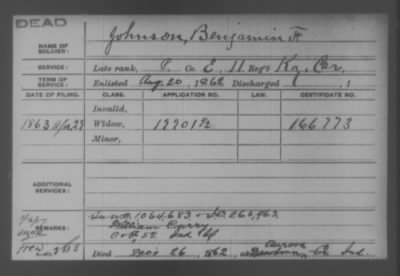 DEAD
NAME OF SOLDIER: Johnson, Benjamin F.
SERVICE: Late rank, P. Co. E, 11 Reg't Ky. Cav.
TERM OF SERVICE: Enlisted Aug. 20, 1862 Discharged , 1
DATE OF FILING. CLASS. APPLICATION NO. LAW. CERTIFICATE NO.
Invalid,
1863 Apr 29 Widow, 166773
Minor,
ADDITIONAL SERVICES:
REMARKS: 1064.683
William
52 Ind
Died Dec 26, 1862, at Aurora
Co. Ind.